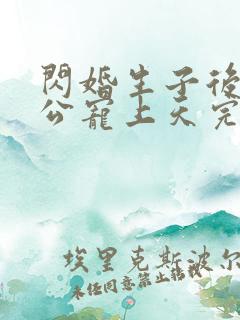 閃婚生子後
公寵上天完
埃里克斯波尔
未任同意禁止转载